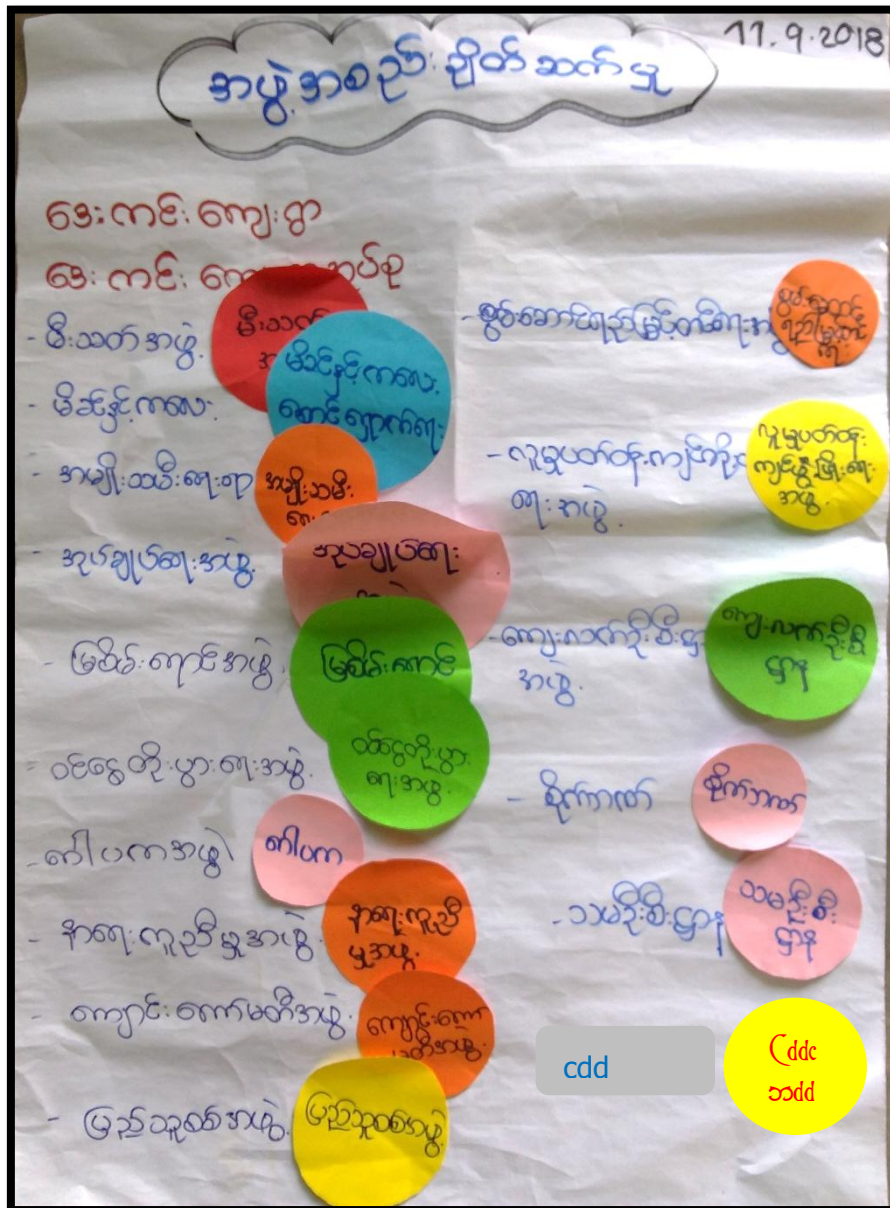 11.9.2018
အဖွဲ့အစည်းချိတ်ဆက်မှု
ဒေးကင်းကျေးရွာ
ဒေးကင်း အုပ်စု
- မီးသတ်အဖွဲ့
မီးသတ်
မိခင်နှင့်ကလေး
စောင့်ရှောက်ရေး
- မိခင်နှင့်ကလေး
- အမျိုးသမီးရေးရာ
အမျိုးသမီး
- အုပ်ချုပ်ရေးအဖွဲ့
အုပ်ချုပ်ရေး
- မြစိမ်းရောင်အဖွဲ့
မြစိမ်းရောင်
- ဝင်ငွေတိုးပွားရေးအဖွဲ့
ဝင်ငွေတိုးပွား
ရေးအဖွဲ့
- ဂေါပကအဖွဲ့
ဂေါပက
- နာရေးကူညီမှုအဖွဲ့
နာရေးကူညီ
မှုအဖွဲ့
- ကျောင်းကော်မတီအဖွဲ့
ကျောင်းကော်
မတီအဖွဲ့
- ပြည်သူ့စစ်အဖွဲ့
ပြည်သူ့စစ်အဖွဲ့
- စွမ်းဆောင်ရည်မြှင့်တင်ရေး
စွမ်းဆောင်
ရည်မြှင့်တင်
ရေး
- လူမှုပတ်ဝန်းကျင်
ရေးအဖွဲ့
လူမှုပတ်ဝန်း
ကျင်ဖွံ့ဖြိုးရေး
အဖွဲ့
- ကျေးလက်ဦးစီးဌာန
အဖွဲ့
ကျေးလက်ဦးစီး
ဌာန
- စိုက်ဘဏ်
စိုက်ဘဏ်
- သမဦးစီးဌာန
သမဦးစီး
ဌာန
cdd
Cddc
ဘdd